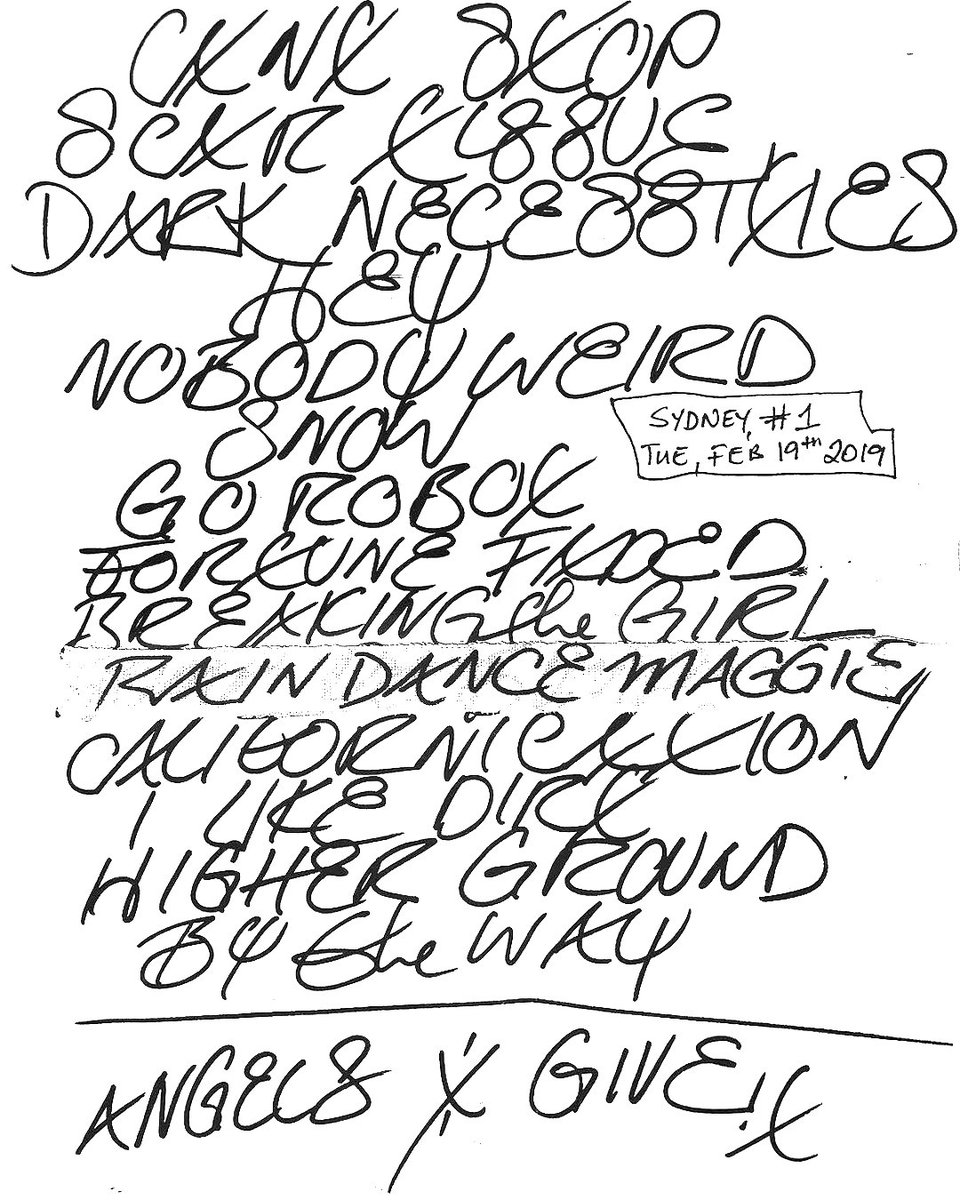 CANT STOP
SCAR TISSUE
DARK NECESSITIES
HEY
NOBODY WEIRD
SNOW
GO ROBOT
FORTUNE FADED
BREAKING the GIRL
RAIN DANCE MAGGIE
CALIFORNICATION
I LIKE DIRT
HIGHER GROUND
BY the WAY
ANGELS X GIVE IT
SYDNEY, #1
TUE, FEB 19th 2019